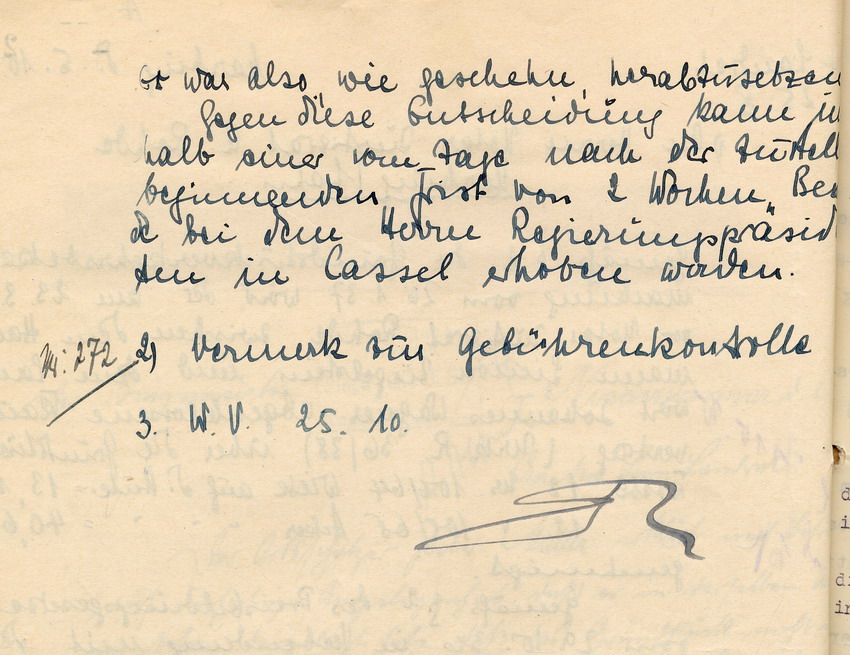 Er war also, wie geschehn, herabzusetzen
Gegen diese Entscheidung kann in
halb einer vom Tage nach der Zustell
beginnenden Frist von 2 Wochen Bes
de bei dem Herrn Regierungspräsid
ten in Cassel erhoben werden.
272 2) Vermerk zur Gebührenkontrolle
3. W. V. 25. 10.
d
i
di
in